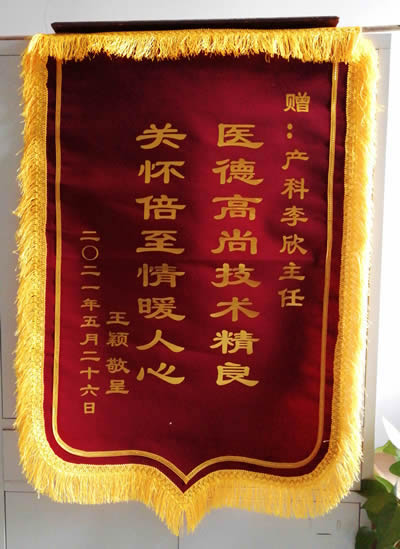 赠：产科李欣主任
医德高尚技术精良
关怀倍至情暖人心
王颖 敬呈
二〇二一年五月二十六日